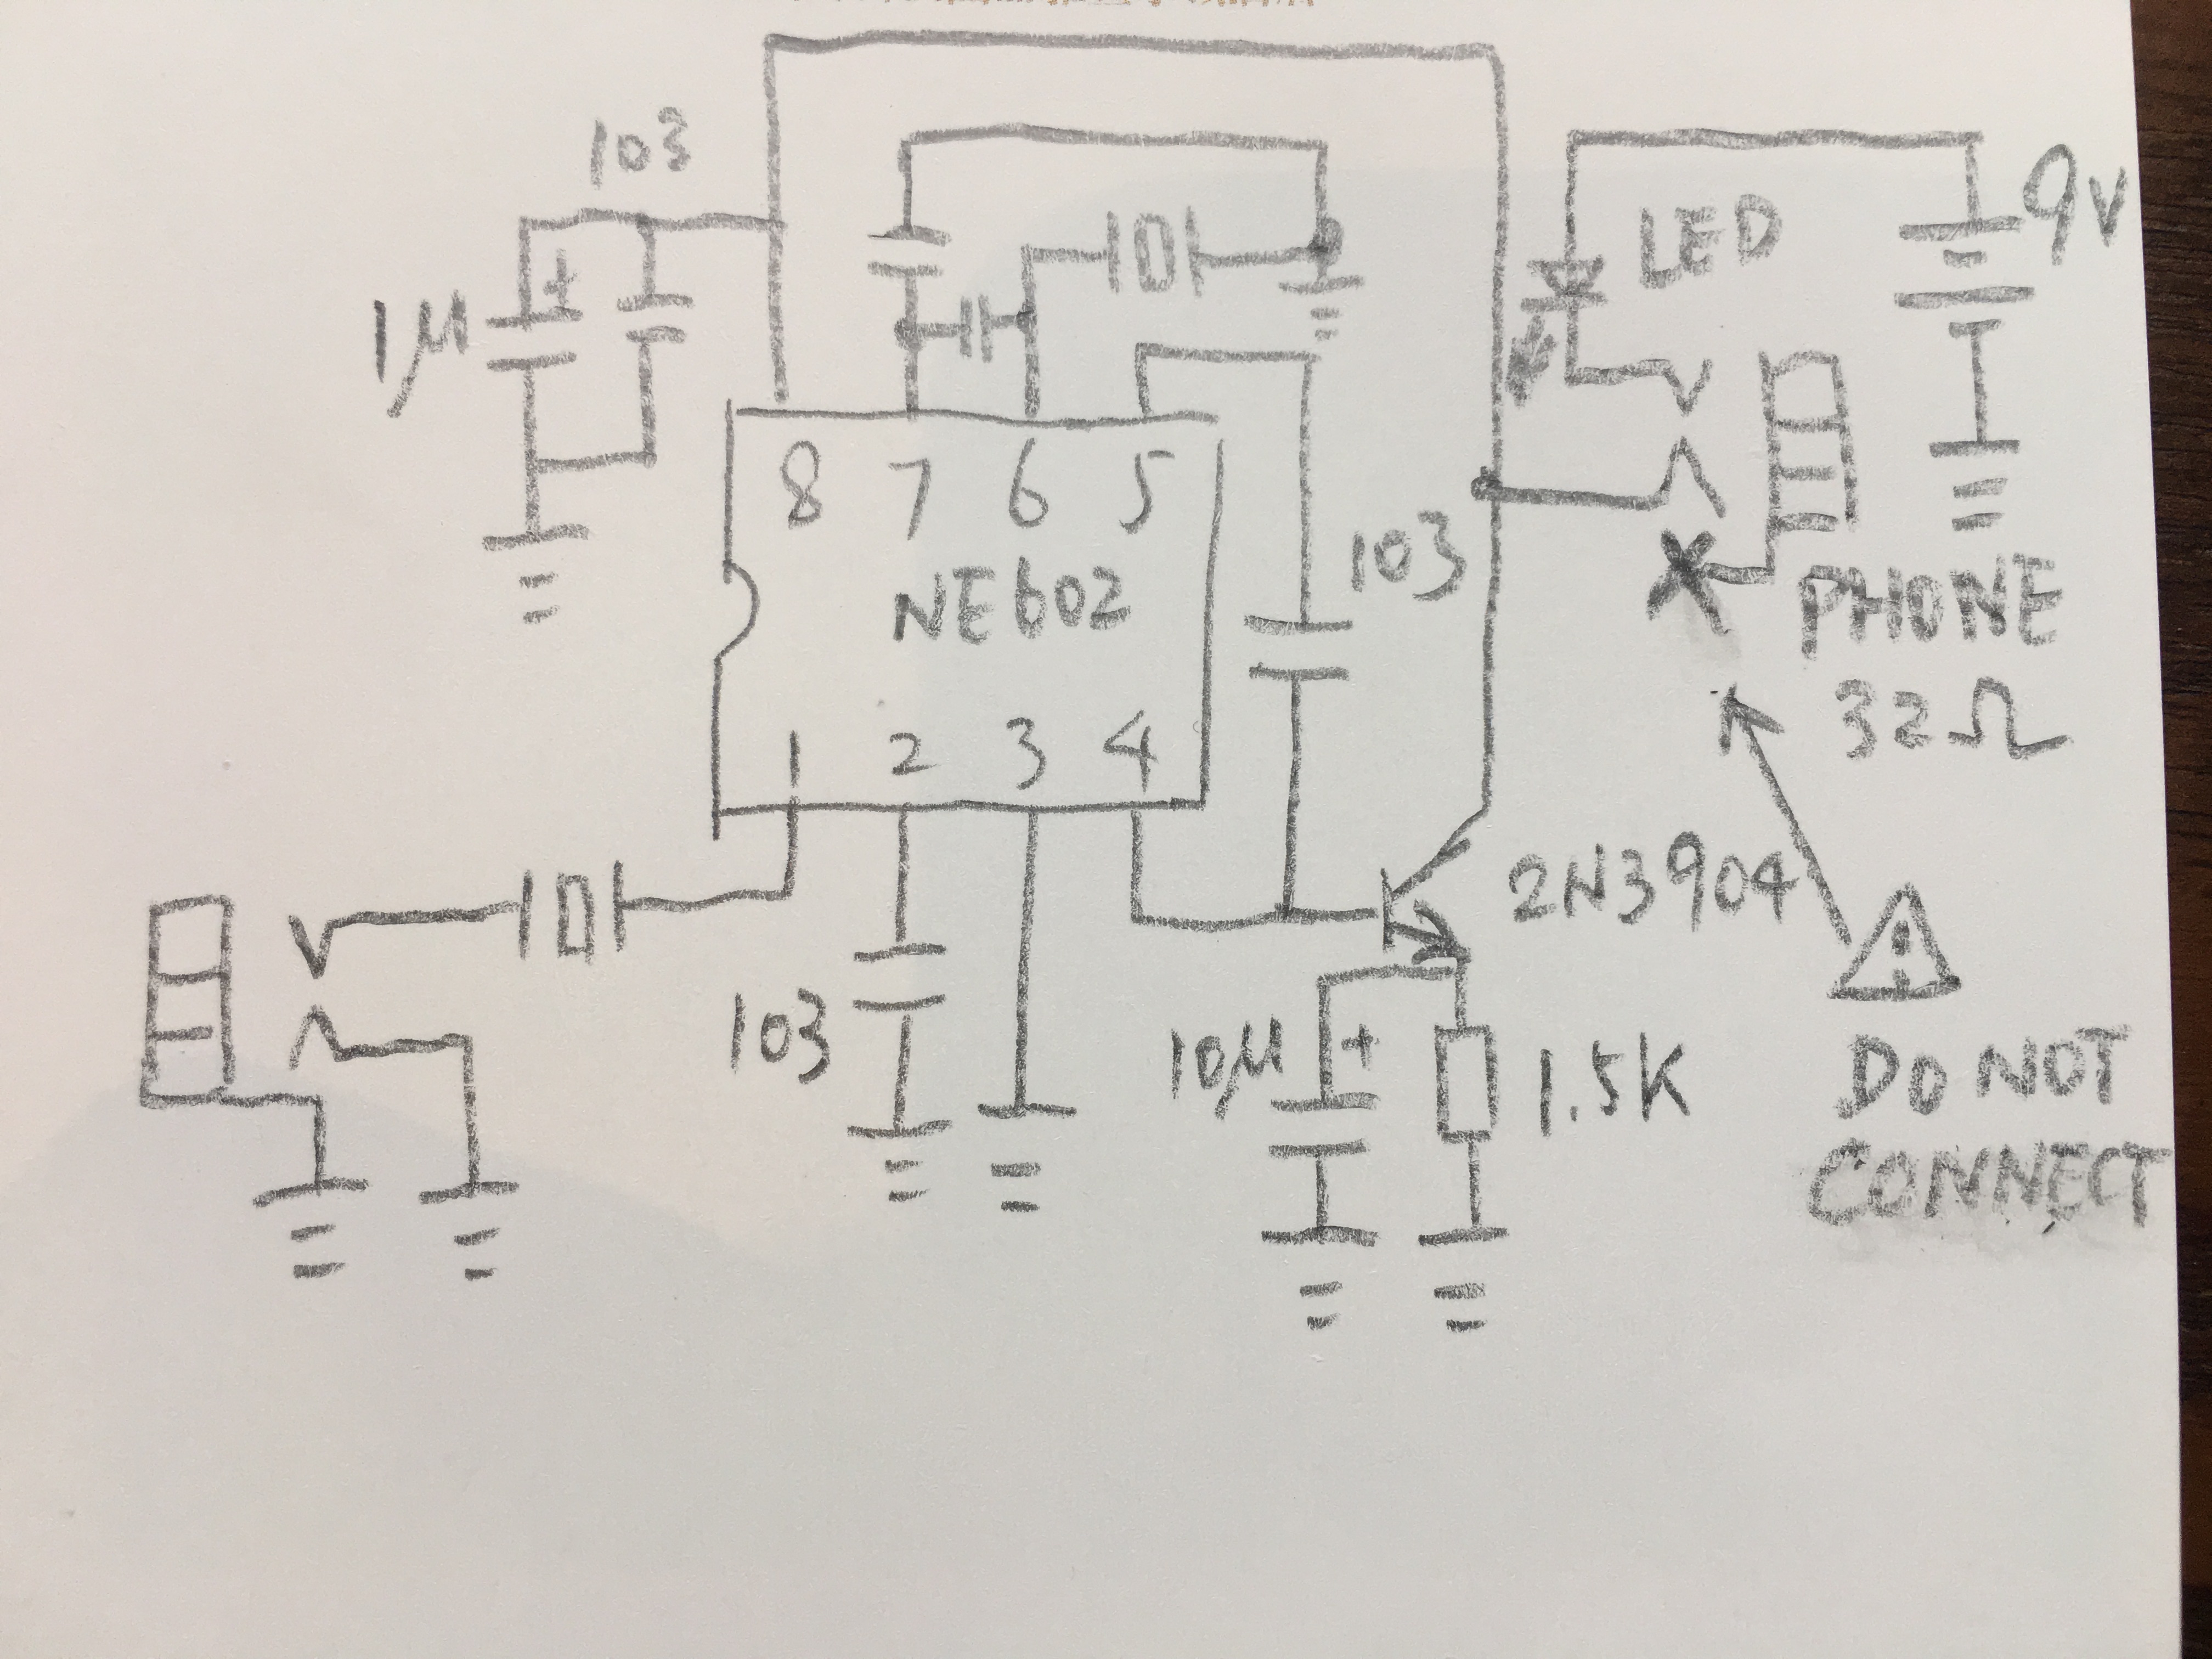 103
1μ
+
LED
9V
8 7 6 5
NE602
1 2 3 4
103
PHONE
32Ω
2N3904
103
10μ
+
1.5K
!
DO NOT
CONNECT